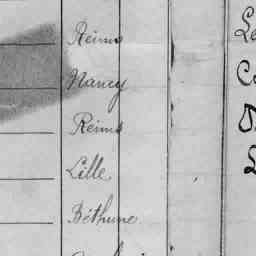 Reims
Nancy
Reims
Lille
Béthune